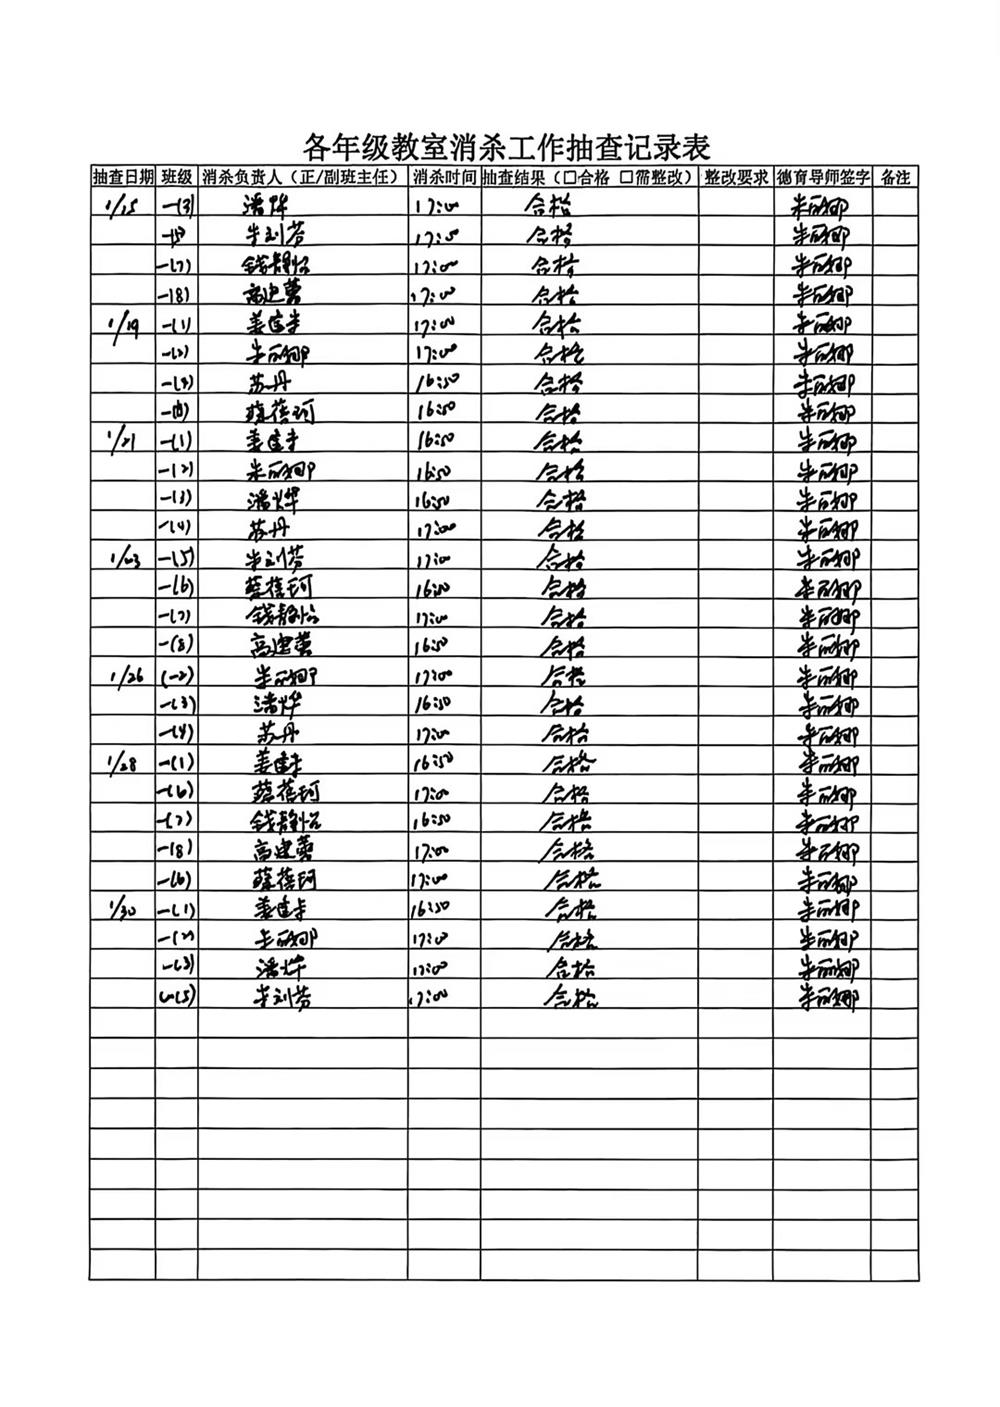 各年级教室消杀工作抽查记录表
抽查日期 班级 消杀负责人（正/副班主任） 消杀时间 抽查结果（□合格 □需整改） 整改要求 德育导师签字 备注
1/15 一(3) 潘烨 17:00 合格 朱丽娜
一(5) 朱刘芬 17:50 合格 朱丽娜
一(7) 钱静怡 17:00 合格 朱丽娜
一(8) 高建蕾 17:00 合格 朱丽娜
1/19 一(1) 17:00 合格 朱丽娜
一(2) 朱丽娜 17:00 合格 朱丽娜
一(4) 苏丹 16:50 合格 朱丽娜
一(6) 蔡蓓珂 16:50 合格 朱丽娜
1/21 一(1) 16:50 合格 朱丽娜
一(2) 朱丽娜 16:50 合格 朱丽娜
一(3) 潘烨 16:50 合格 朱丽娜
一(4) 苏丹 17:00 合格 朱丽娜
1/23 一(5) 朱刘芬 17:00 合格 朱丽娜
一(6) 蔡蓓珂 16:50 合格 朱丽娜
一(7) 钱静怡 17:00 合格 朱丽娜
一(8) 高建蕾 16:50 合格 朱丽娜
1/26 (一2) 朱丽娜 17:00 合格 朱丽娜
一(3) 潘烨 16:50 合格 朱丽娜
一(4) 苏丹 17:00 合格 朱丽娜
1/28 一(1) 16:50 合格 朱丽娜
一(6) 蔡蓓珂 17:00 合格 朱丽娜
一(7) 钱静怡 16:50 合格 朱丽娜
一(8) 高建蕾 17:00 合格 朱丽娜
一(6) 蔡蓓珂 17:00 合格 朱丽娜
1/30 一(1) 16:50 合格 朱丽娜
一(2) 朱丽娜 17:00 合格 朱丽娜
一(3) 潘烨 17:00 合格 朱丽娜
一(5) 朱刘芬 17:00 合格 朱丽娜